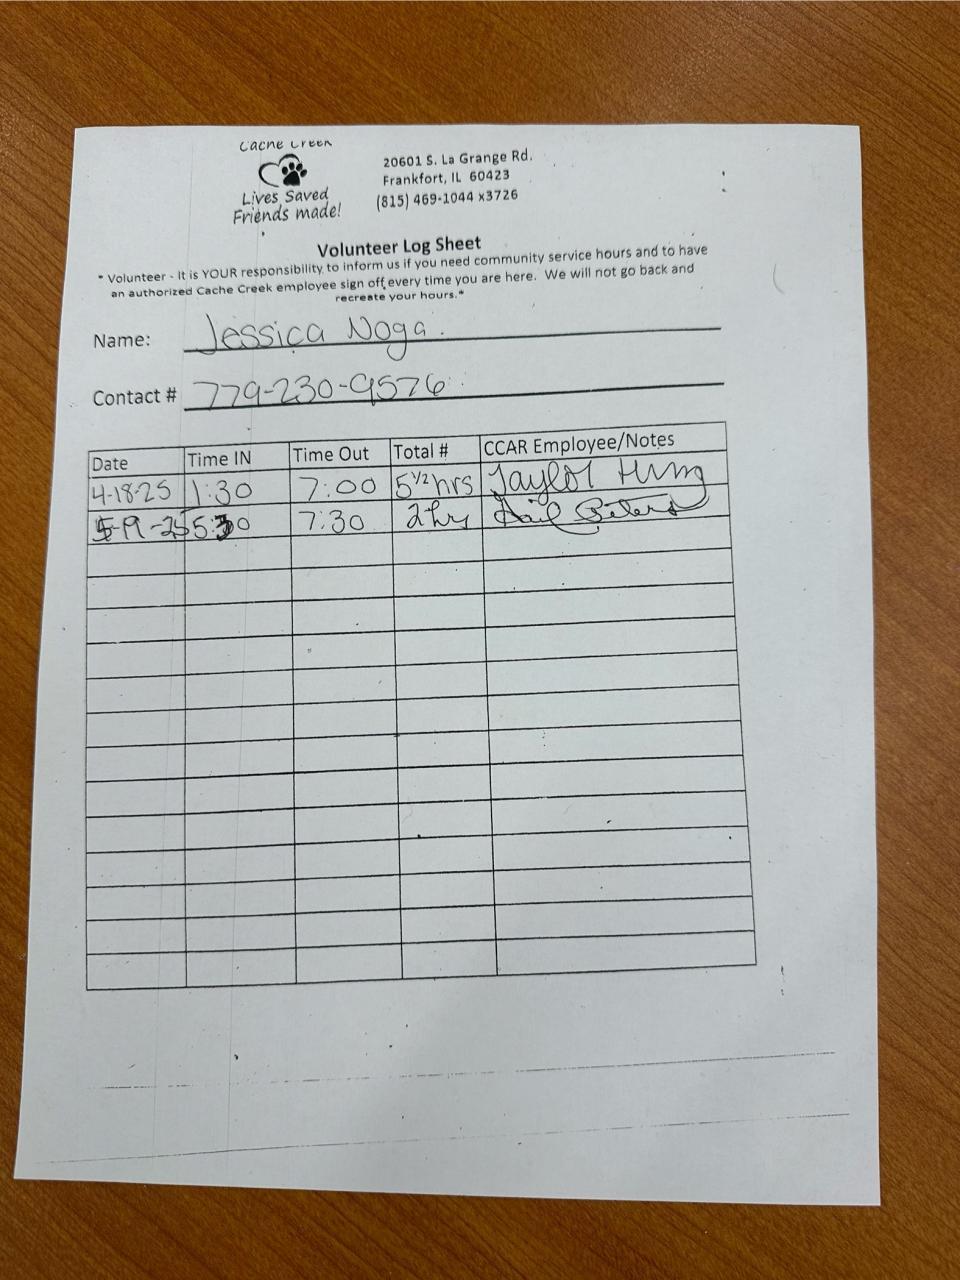 Cache Creek
Lives Saved
Friends made!
20601 S. La Grange Rd.
Frankfort, IL 60423
(815) 469-1044 x3726
Volunteer Log Sheet
* Volunteer - It is YOUR responsibility to inform us if you need community service hours and to have
an authorized Cache Creek employee sign off every time you are here. We will not go back and
recreate your hours.*
Name: Jessica Noga.
Contact # 779-230-9576
Date Time IN Time Out Total # CCAR Employee/Notes
4-18-25 1:30 7:00 5 1/2 hrs Taylor
5-19-25 5:30 7:30 2 hr